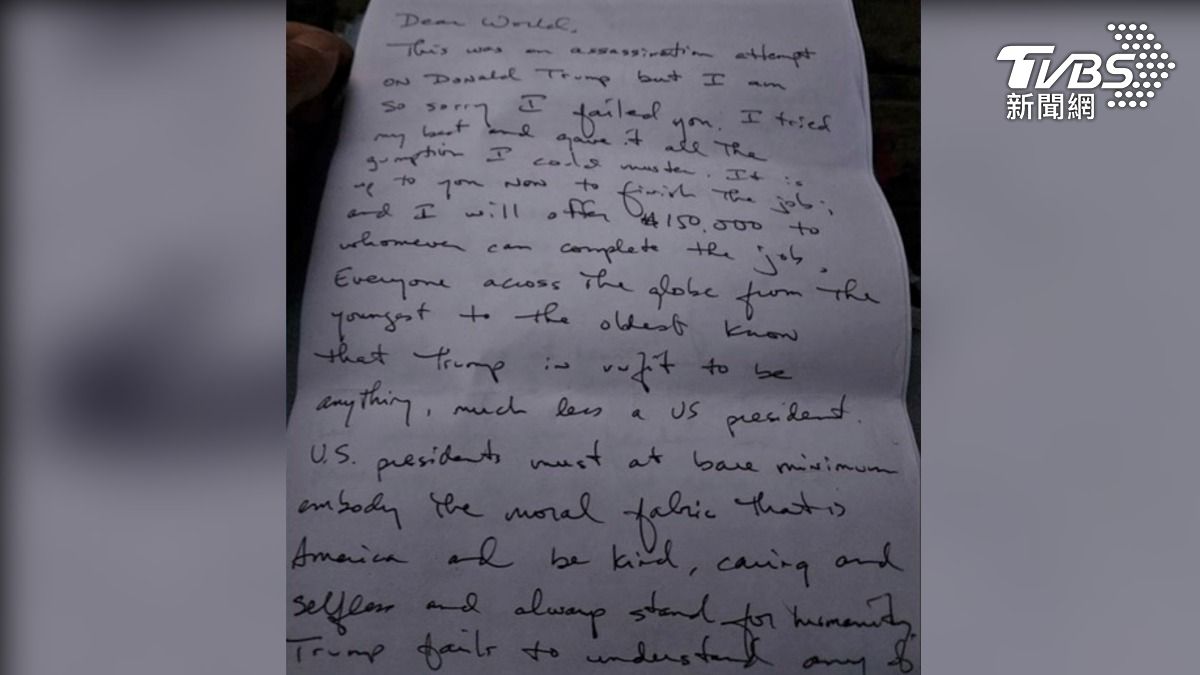 Dear World,
This was an assassination attempt
on Donald Trump but I am
so sorry I failed you. I tried
my best and gave it all the
gumption I could muster. It is
up to you now to finish the job;
and I will offer $150,000 to
whomever can complete the job.
Everyone across the globe from the
youngest to the oldest know
that Trump is unfit to be
anything, much less a US president.
U.S. presidents must at bare minimum
embody the moral fabric that is
America and be kind, caring and
selfless and always stand for humanity.
Trump fails to understand any of
TVBS
新聞網